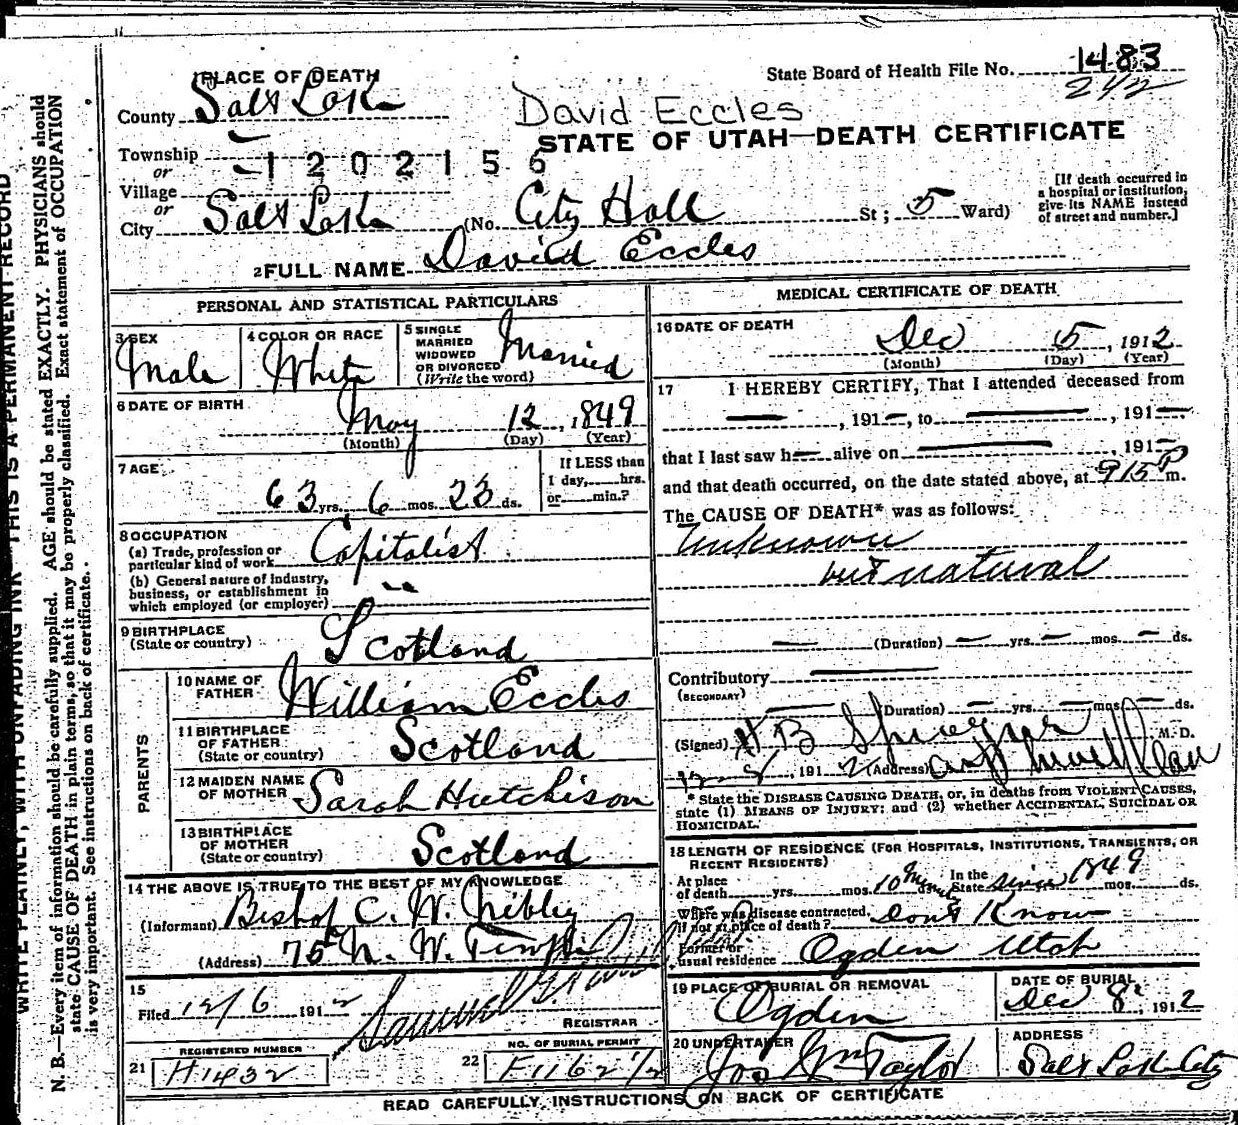 1 PLACE OF DEATH
State Board of Health File No. 1483
242
County Salt Lake
David Eccles
STATE OF UTAH—DEATH CERTIFICATE
Township
or
1202156
Village
or
City Salt Lake (No. City Hall St; 5 Ward)
[If death occurred in
a hospital or institution,
give its NAME instead
of street and number.]
2 FULL NAME David Eccles
PERSONAL AND STATISTICAL PARTICULARS
3 SEX
Male
4 COLOR OR RACE
White
5 SINGLE
MARRIED
WIDOWED
OR DIVORCED
(Write the word)
Married
6 DATE OF BIRTH
May 12, 1849
(Month) (Day) (Year)
7 AGE
63 yrs. 6 mos. 23 ds.
If LESS than
1 day, hrs.
or min.?
8 OCCUPATION
(a) Trade, profession or
particular kind of work Capitalist
(b) General nature of industry,
business, or establishment in
which employed (or employer)
9 BIRTHPLACE
(State or country) Scotland
PARENTS
10 NAME OF
FATHER William Eccles
11 BIRTHPLACE
OF FATHER
(State or country) Scotland
12 MAIDEN NAME
OF MOTHER Sarah Hutchison
13 BIRTHPLACE
OF MOTHER
(State or country) Scotland
14 THE ABOVE IS TRUE TO THE BEST OF MY KNOWLEDGE
(Informant) Bishop C. W. Nibley
(Address) 75 N. W. Temple
15
Filed 12/6 1912 Samuel G. Paul
REGISTRAR
21 REGISTERED NUMBER
H1432
22 NO. OF BURIAL PERMIT
F1162 1/2
MEDICAL CERTIFICATE OF DEATH
16 DATE OF DEATH
Dec 5, 1912
(Month) (Day) (Year)
17 I HEREBY CERTIFY, That I attended deceased from
—, 191—, to —, 191—
that I last saw h— alive on —, 191—
and that death occurred, on the date stated above, at 915 P m.
The CAUSE OF DEATH* was as follows:
Unknown
but natural
— (Duration) — yrs. — mos. — ds.
Contributory —
(SECONDARY)
— (Duration) — yrs. — mos. — ds.
(Signed) H B Sprague M. D.
, 1912 (Address)
* State the DISEASE CAUSING DEATH, or, in deaths from VIOLENT CAUSES,
state (1) MEANS OF INJURY; and (2) whether ACCIDENTAL, SUICIDAL OR
HOMICIDAL.
18 LENGTH OF RESIDENCE (FOR HOSPITALS, INSTITUTIONS, TRANSIENTS, OR
RECENT RESIDENTS)
At place
of death yrs. mos. 10 In the
State since 1849 mos. ds.
Where was disease contracted,
if not at place of death? Dont Know
Former or
usual residence Ogden Utah
19 PLACE OF BURIAL OR REMOVAL
Ogden
DATE OF BURIAL
Dec 8, 1912
20 UNDERTAKER
Jos Wm Taylor
ADDRESS
Salt Lake City
READ CAREFULLY, INSTRUCTIONS ON BACK OF CERTIFICATE
WRITE PLAINLY, WITH UNFADING INK—THIS IS A PERMANENT RECORD
N. B.—Every item of information should be carefully supplied. AGE should be stated EXACTLY. PHYSICIANS should
state CAUSE OF DEATH in plain terms, so that it may be properly classified. Exact statement of OCCUPATION
is very important. See instructions on back of certificate.